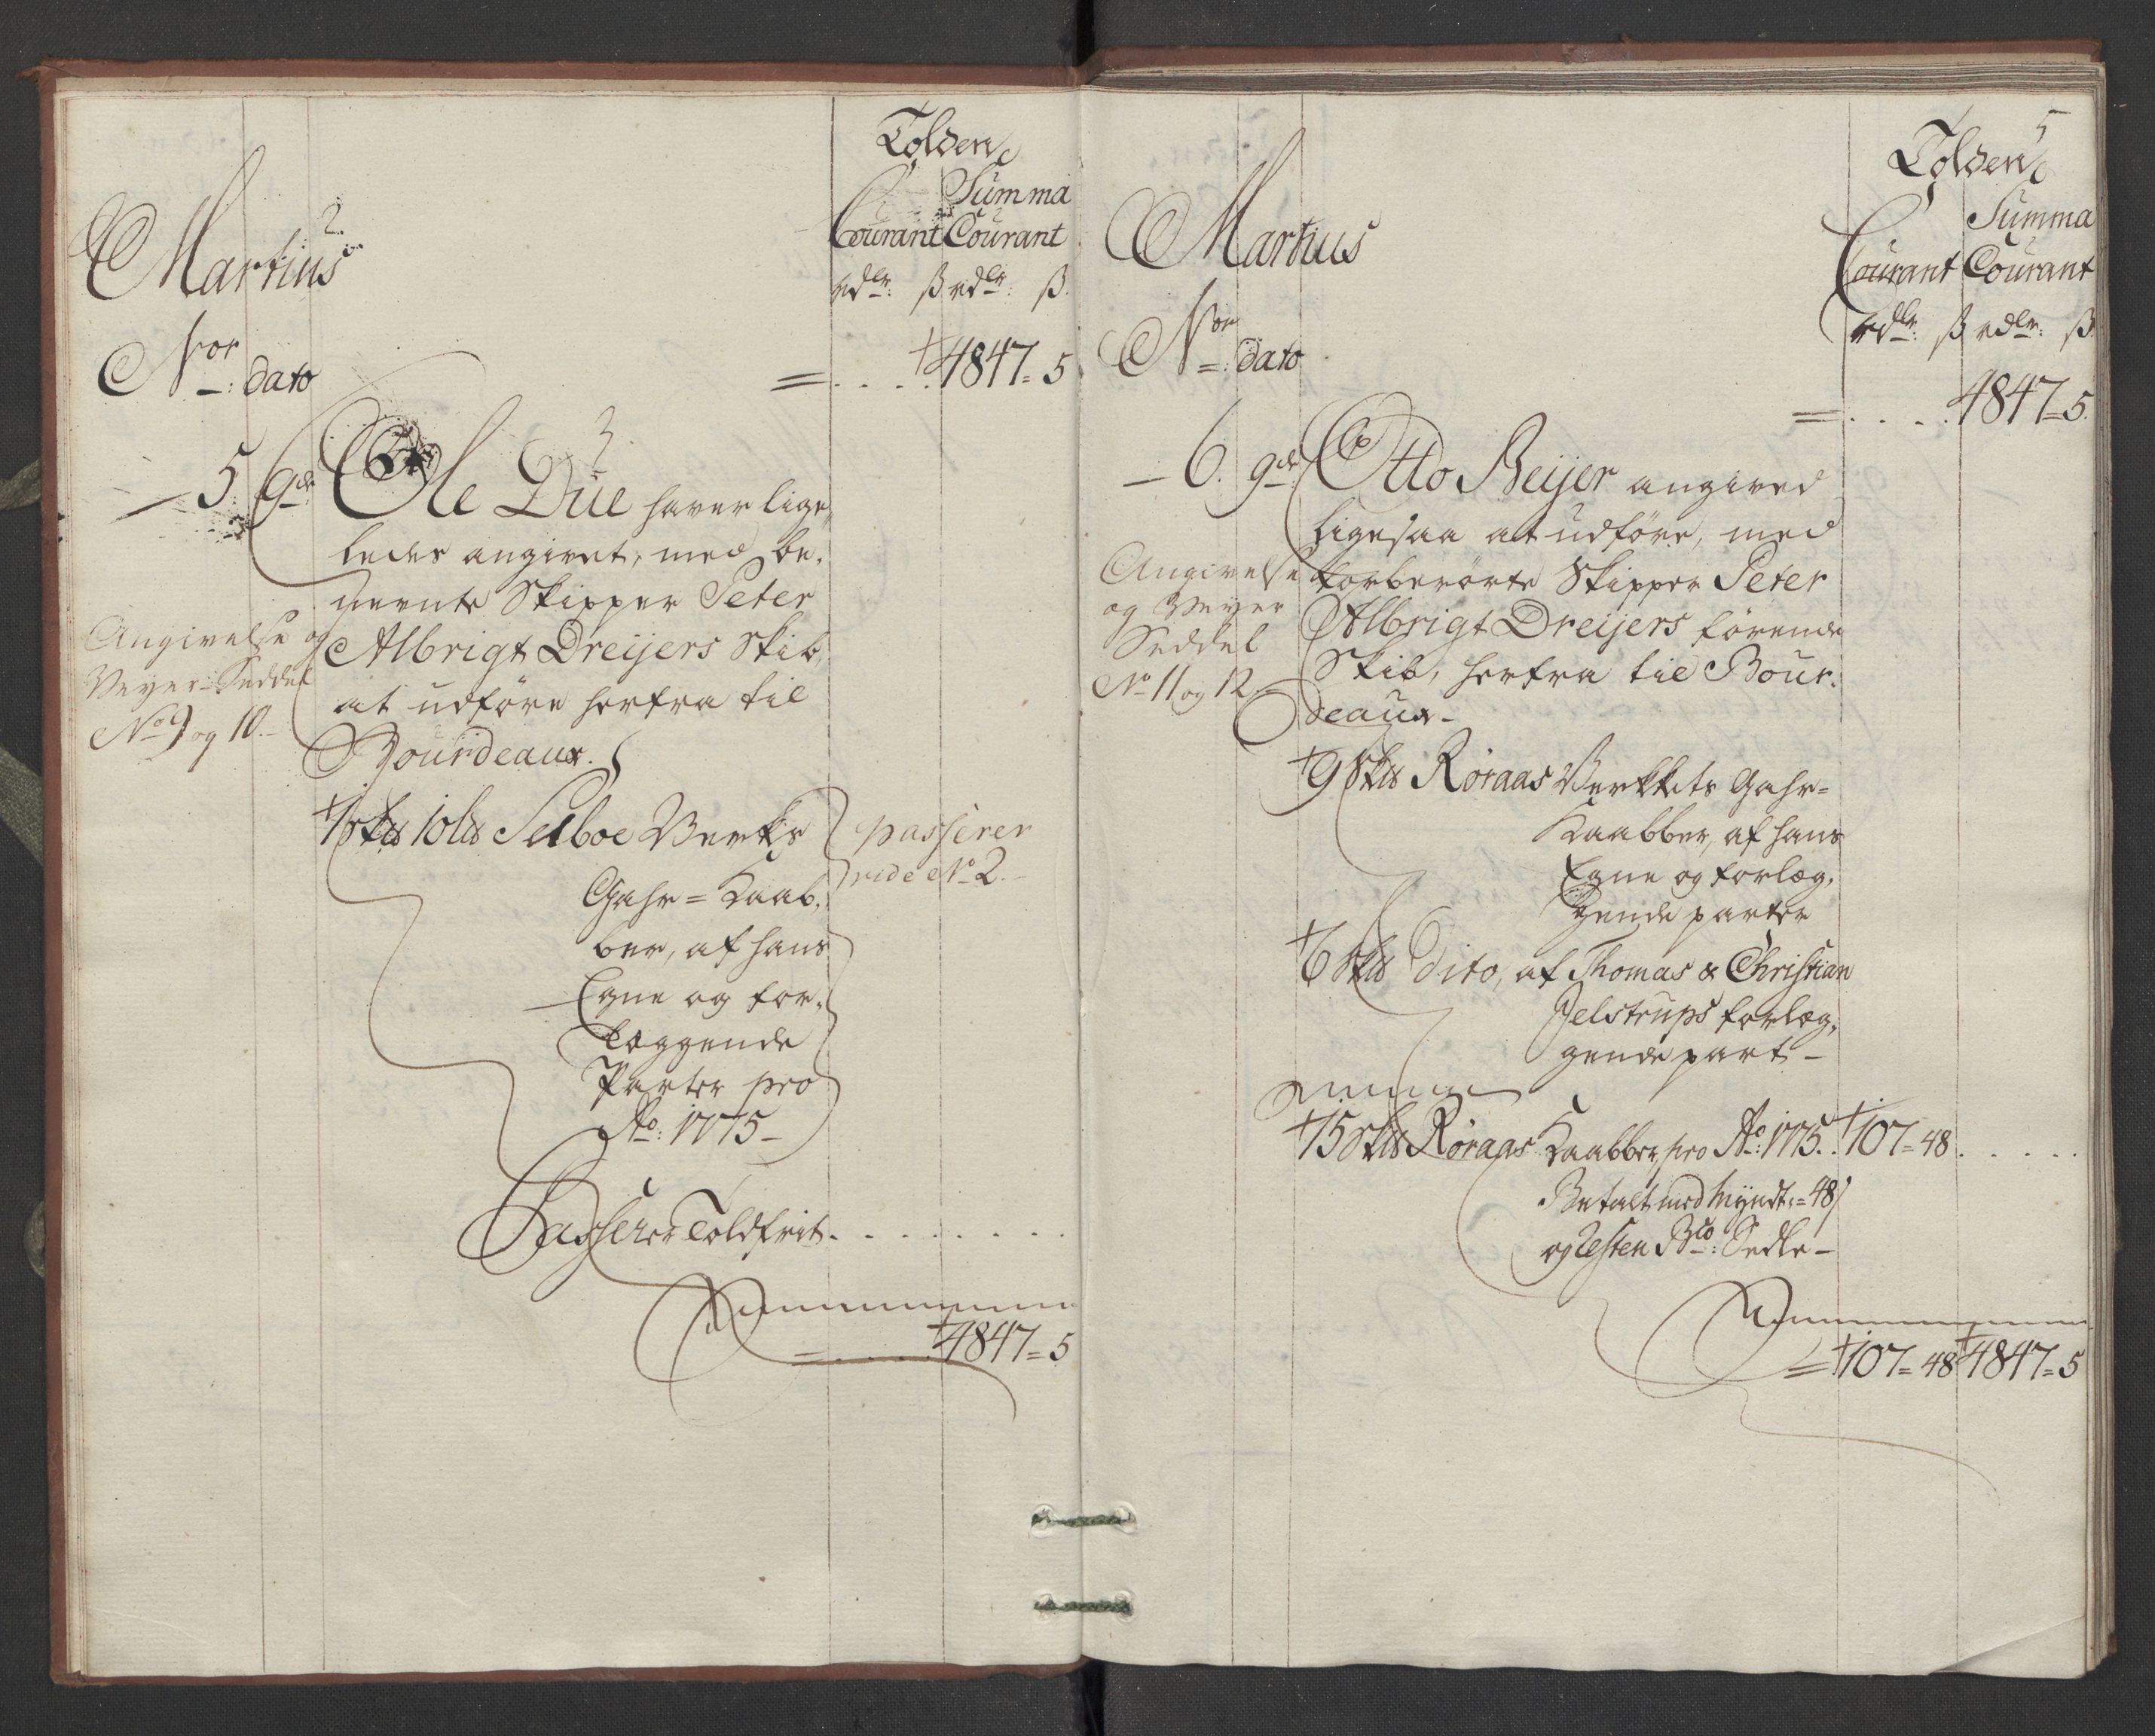 Tolden
Summa
Courant Courant
rdlr: ß rdlr: ß.
Martius
Nor: dato
= . . . . 4847 = 5
5 9de Ole Due haver lige,
ledes angivet, med be,
nevnte Skipper Peter
Albrigt Dreijers Skib,
at udføre herfra til
Bourdeaux.
Angivelse og
Veyer-Seddel
No 9 og 10.-
1 Sk℔ 10 L℔ Selboe Verks
Gahr = Kaab,
ber, af hans
Egne og for,
læggende
Parter pro
Ao: 1775 -
passerer
vide No 2.-
Passerer Toldfrit . . . . . . . .
= . . . . . 4847 = 5
5
Tolden
Summa
Courant Courant
rdlr: ß rdlr: ß
Martius
Nor: dato
= . . . . 4847 = 5.
- 6. 9de Otto Beijer angived
ligesaa at udføre, med
forberørte Skipper Peter
Albrigt Dreijers førende
Skib, herfra til Bour,
deaux -
Angivelse
og Veyer
Seddel
No 11 og 12.
9 Sk℔ Røraas Verkets Gahr =
Kaabber, af hans
Egne og forlæg,
gende parter
6 Sk℔ Dito, af Thomas & Christian
Jelstrups forlæg,
gende part -
15 Sk℔ Røraas Kaabber, pro Ao: 1775. . 107 = 48 . . . . .
Betalt med Myndt: = 48 ß
og Resten Bco: Sedler -
= 107 = 48 4847 = 5